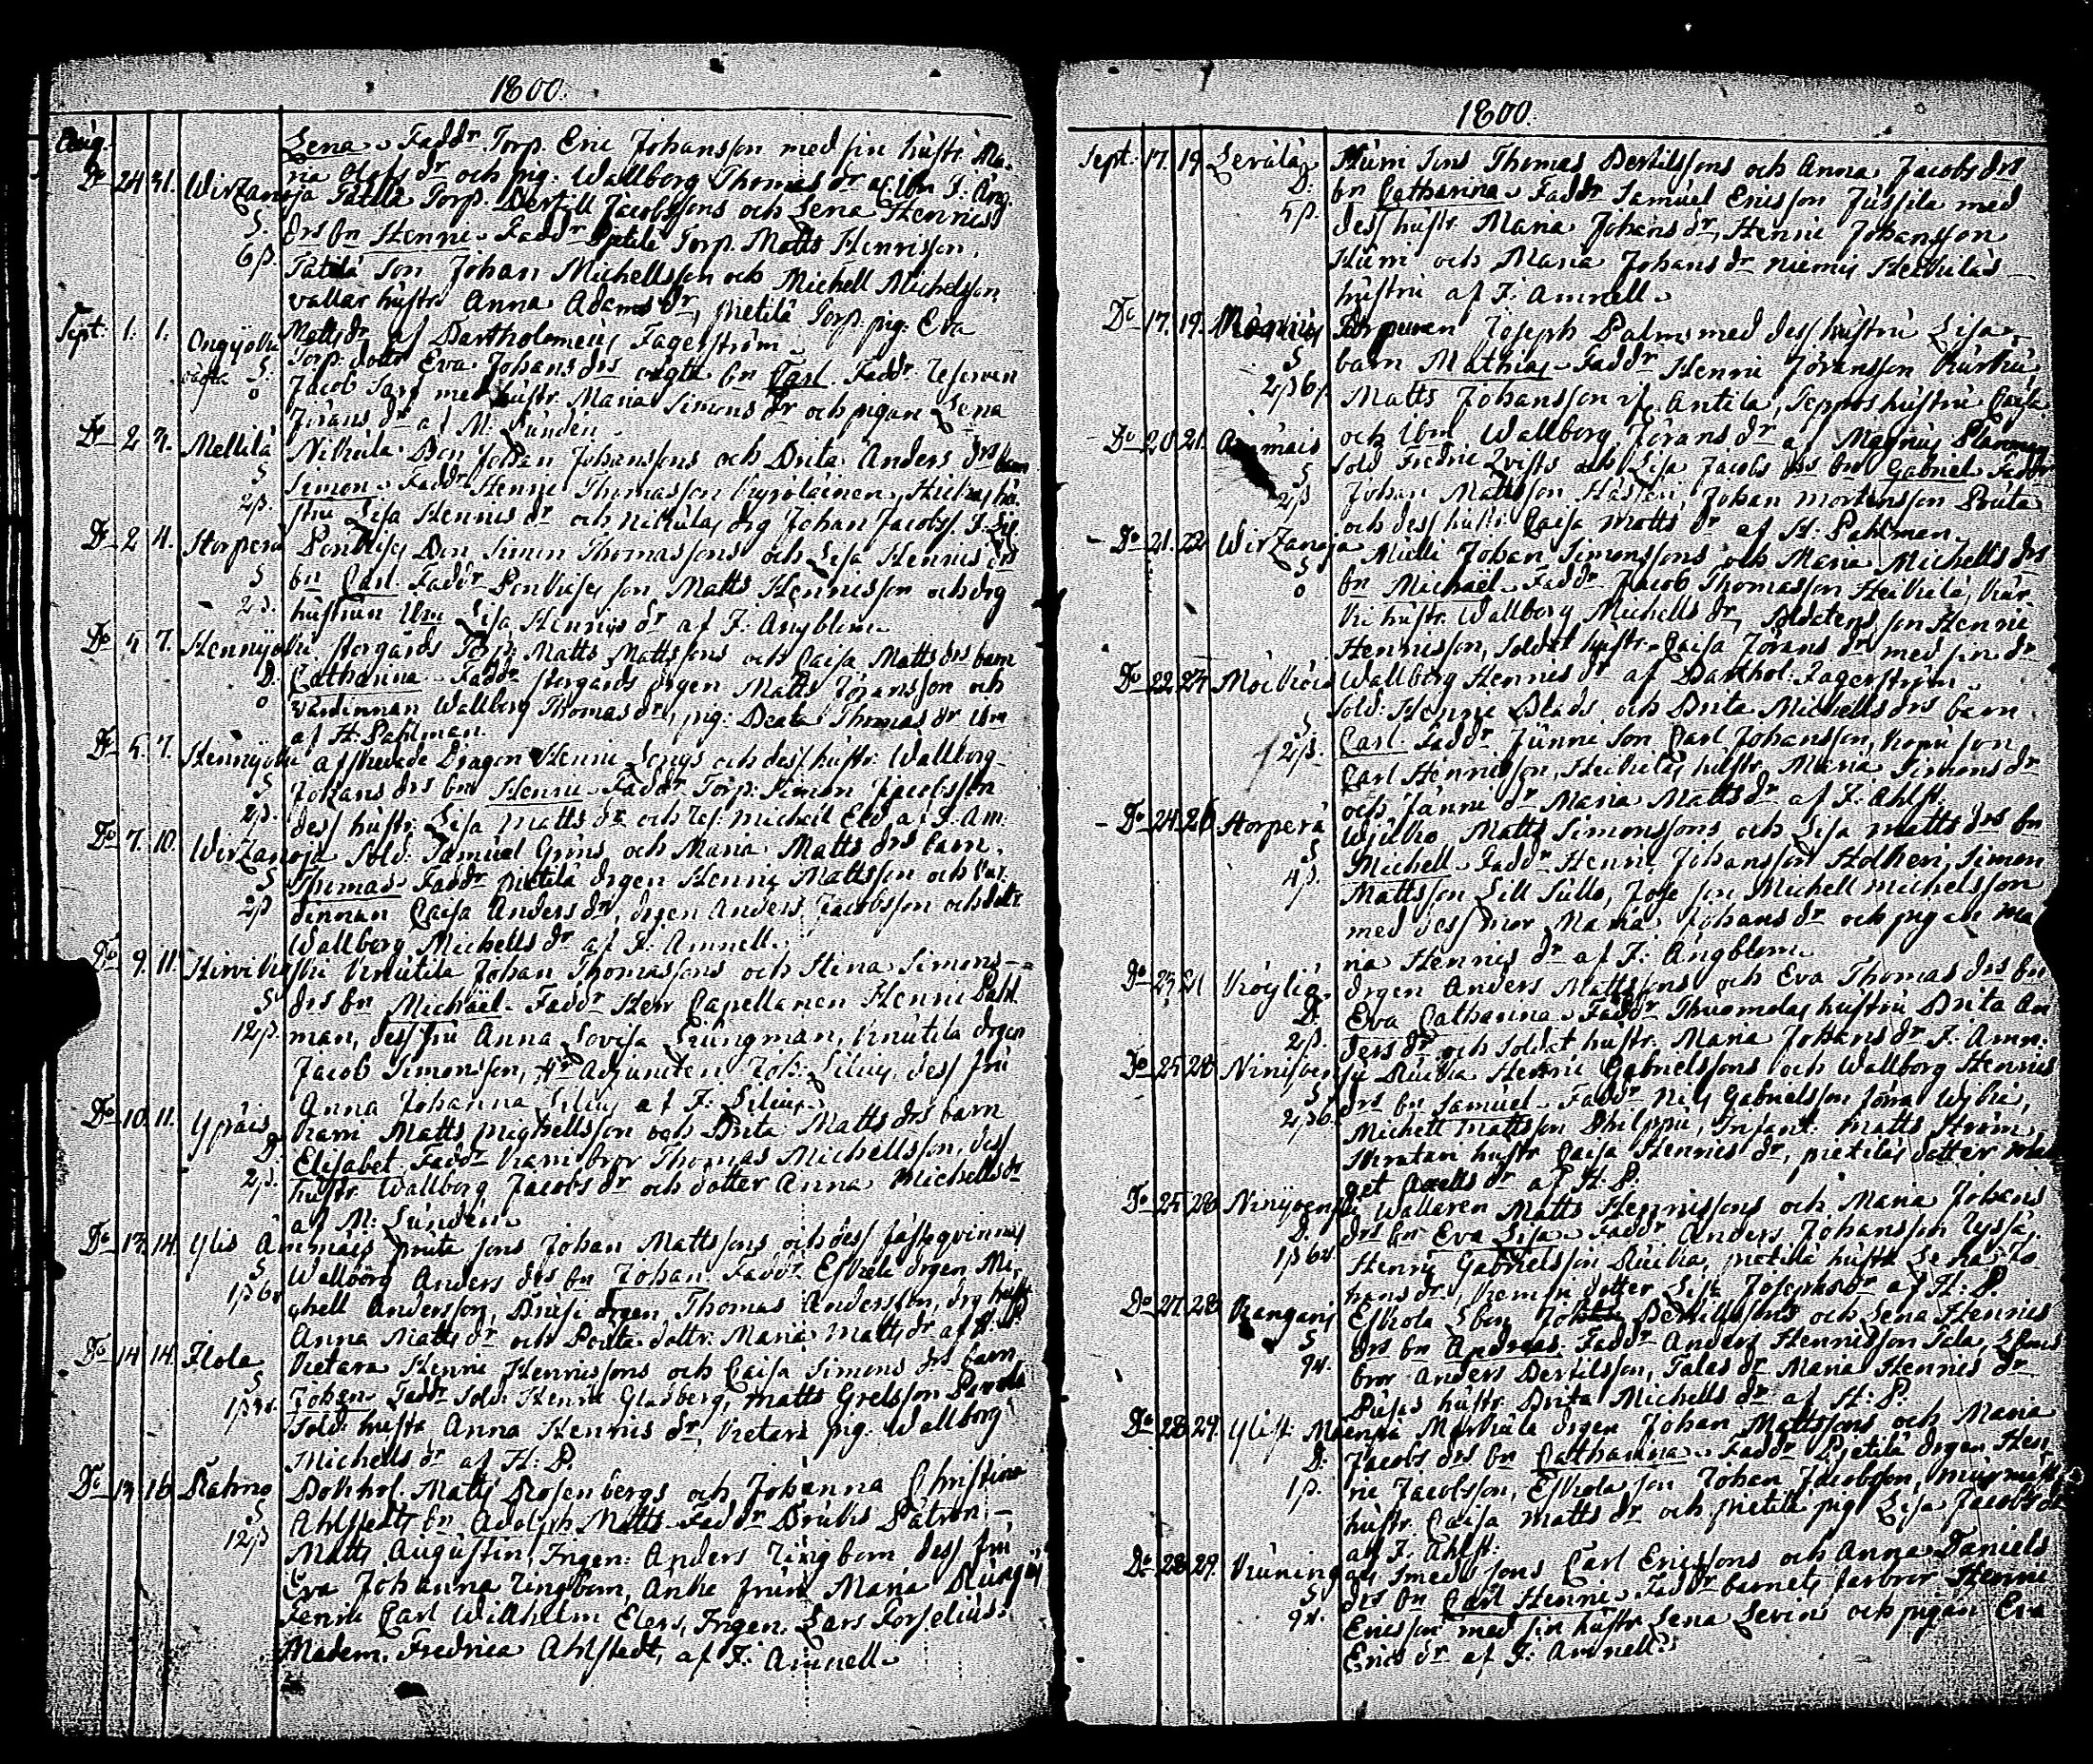 1800.
Aug. Lena. Faddr. Torp. Eric Johansson med sin hustr. Ma-
na Olofs dr och pig. Wallborg Thomas dr af Ibm J. Ang.
Do 24 31. Wirzanoja Tatila Torp. Bertill Jacobssons och Lena Henrics
S. drs bn Henric. Faddr Pietilä Torp. Matts Henrisson,
6 β. Tatila Son Johan Michellsson och Michell Michelsson
vallar hustru Anna Adams dr, pietilä Torp. pig. Eva
Matts dr af Bartholomeus Fagerström.
Sept. 1. 1. Ongyoki Torp. dottr Eva Johans drs oägta bn Carl. Faddr Reserven
oägta S. Jacob Sarf med hustr. Maria Simons dr och pigan Lena
o Jörans dr af M. Sundén.
Do 2 3. Mellilä Nikula Bon Johan Johanssons och Brita Anders drs barn
S Simon. Faddr Henric Thomasson Kyröläinen, Heikas hu-
2 β. stru Lisa Henrics dr och Nikulas drg Johan Jacobss. J. Lil
Do 2 4. Storperä Bon Simon Thomassons och Lisa Henrics drs
S bn Carl. Faddr son Matts Henrisson och drg
2 β. hustrun Ibm Lisa Henrics dr af J. Angblom.
Do 5 7. Hennyoki storgårds Torp. Matts Mattssons och Caisa Matts drs barn
D. Catharina. Faddr storgards drgen Matts Göransson och
o värdinnan Wallborg Thomas dr, pig. Beata Thomas dr Ibm
af H. Pahlman.
Do 5. 7. Hennyoki afskedade Dragon Henric Lengs och dess hustr. Wallborg
S Johans drs bn Henric. Faddr Torp. Simon Jacobsson
2 β. dess hustr. Lisa Matts dr och Res. Michell Eld af J. Am.
Do 7. 10. Wirzanoja Sold. Samuel Grins och Maria Matts drs barn.
S Thomas. Faddr pietilä drgen Henric Mattsson och vär-
2 β dinnan Caisa Anders dr, drgen Anders Jacobsson och dottr
Wallborg Michells dr af J. Amnell.
Do 9. 11. Hirvikoski Knutila Johan Thomassons och Stina Simons-
S drs bn Michaël. Faddr Herr Capellanen Henric Pahl
12 β. man, dess fru Anna Lovisa Ljungman, Knutila drgen
Jacob Simonsson, Hr Adjuncten Joh. Lilius, dess fru
Anna Johanna Lilius af J. Lilius.
Do 10. 11. Ypäis Matts Michellsson och Brita Matts drs barn
D. Elisabet. Faddr bror Thomas Michellsson, dess
2 β. hustr. Wallborg Jacobs dr och dotter Anna Michells dr
af M. Sundén.
Do 13. 14. Ylis Ammäis pruta sons Johan Mattssons och dess fästeqvinnas
S Wallborg Anders drs bn Johan. Faddr Eskola drgen Mi-
1 β 6 r chell Andersson, drgen Thomas Andersson, drg hustr
Anna Matts dr och dottr. Maria Matts dr af H. P.
Do 14 14. Ilola Vietara Henric Henricssons och Caisa Simons drs barn
S Johan. Faddr Sold. Henric Gladberg, Matts Grelsson
Sold. hustr Anna Henrics dr, Vietara pig. Wallborg
Michells dr af H. P.
Do 13 16. Rahno Bokhol. Matts Rosenbergs och Johanna Christina
S Ahlstedts bn Adolph Matts. Faddr Bruks Patron
12 β Matts Augustin, Ingen. Anders Ringbom dess fru
Eva Johanna Ringbom, Anke fruan Maria
Fenrik Carl Wilhelm Elers, Ingen. Lars Forselius
Madem. Fredrica Ahlstedt, af J. Amnell.
1800.
Sept. 17. 19. Levälä Hurri Sons Thomas Bertilssons och Anna Jacobs drs
D. bn Catharina. Faddr Samuel Ericsson Jussila med
5 β. dess hustr. Maria Johans dr, Henric Johansson
Hurri och Maria Johans dr Niemis Heikeläs
hustru af J. Amnell.
Do 17. 19. Torparen Joseph Palm med dess hustru Lisa
S barn Mathias. Faddr Henric Jöransson Kurku
2 β 6 r. Matts Johansson af Antila, Seppos hustru Caisa
och Ibm Wallborg Jörans dr af Magnus
Do 20 21. Ammäis Sold Fredric Qvists och Lisa Jacobs drs bn Gabriel Faddr
S Johan Mattsson Johan Mortensson Pruta
2 β och dess hustr. Caisa Matts dr af H. Pahlman
Do 21. 22 Wirzanoja Mielli Johan Simonssons och Maria Michells drs
S bn Michael. Faddr Jacob Thomasson Heikkilä, Kär
o ki hustr. Wallborg Michells dr, Soldatens son Henric
Henrisson, Soldat hustr. Caisa Jörans dr med sin dr
Wallborg Henrics dr af Barthol. Fagerström.
Do 22 23 Sold. Henric Blads och Brita Michells drs barn
S Carl Faddr Junni Son Carl Johansson, son
2 β. Carl Henricsson, Heikelas hustr. Maria Simons dr
och Junni dr Maria Matts dr af J. Ahlst.
Do 24 26 Storperä Matts Simonssons och Lisa Matts drs bn
S Michell. Faddr Henric Johansson Holkeri, Simon
4 β. Mattsson Lill Sullo, son Michell Michelsson
med dess mor Maria Johans dr och pigan Ma
ria Henrics dr af J. Angblom.
Do 25 21 Köyliä drgen Anders Mattssons och Eva Thomas drs bn
D. Eva Catharina. Faddr hustru Brita An
2 β. ders dr och Soldat hustr. Maria Johans dr J. Amn.
Do 25 28 Niniponsu Henric Gabrielssons och Wallborg Henrics
S drs bn Samuel. Faddr Nils Gabrielsson
2 β 6. Michell Mattsson Philppu, Infant. Matts Ström,
hustr Caisa Henrics dr, pietiläs dotter
get Axells dr af H. P.
Do 25 28 Wallaren Matts Henrissons och Maria Johans
D. drs bn Eva Lisa. Faddr Anders Johansson Ryssä,
1 β 6 r. Henric Gabrielsson pietilä hustr Lena Jo
hans dr, dotter Lisa Josephs dr af H: P.
Do 27. 28 Kangaris Eskola Bertilssons och Lena Henrics
S drs bn Andreas. Faddr Anders Henricsson
9 r. bror Anders Bertilsson, Talas dr Maria Henrics dr
hustr. Brita Michells dr af H: P.
Do 28 29 Markula drgen Johan Mattssons och Maria
D. Jacobs drs bn Catharina. Faddr Pietilä drgen Hen
1 β. ric Jacobsson, Eskola son Johan Jacobsson,
hustr. Caisa Matts dr och pietilä pig. Lisa Jacobs dr
af J. Ahlst.
Do 28 29. Smeds sons Carl Ericssons och Anna Daniels
S drs bn Carl Henric. Faddr barnets farbror Henric
9 r. Ericsson med sin hustr Lena Levin och pigan Eva
Erics dr af J. Amnell.